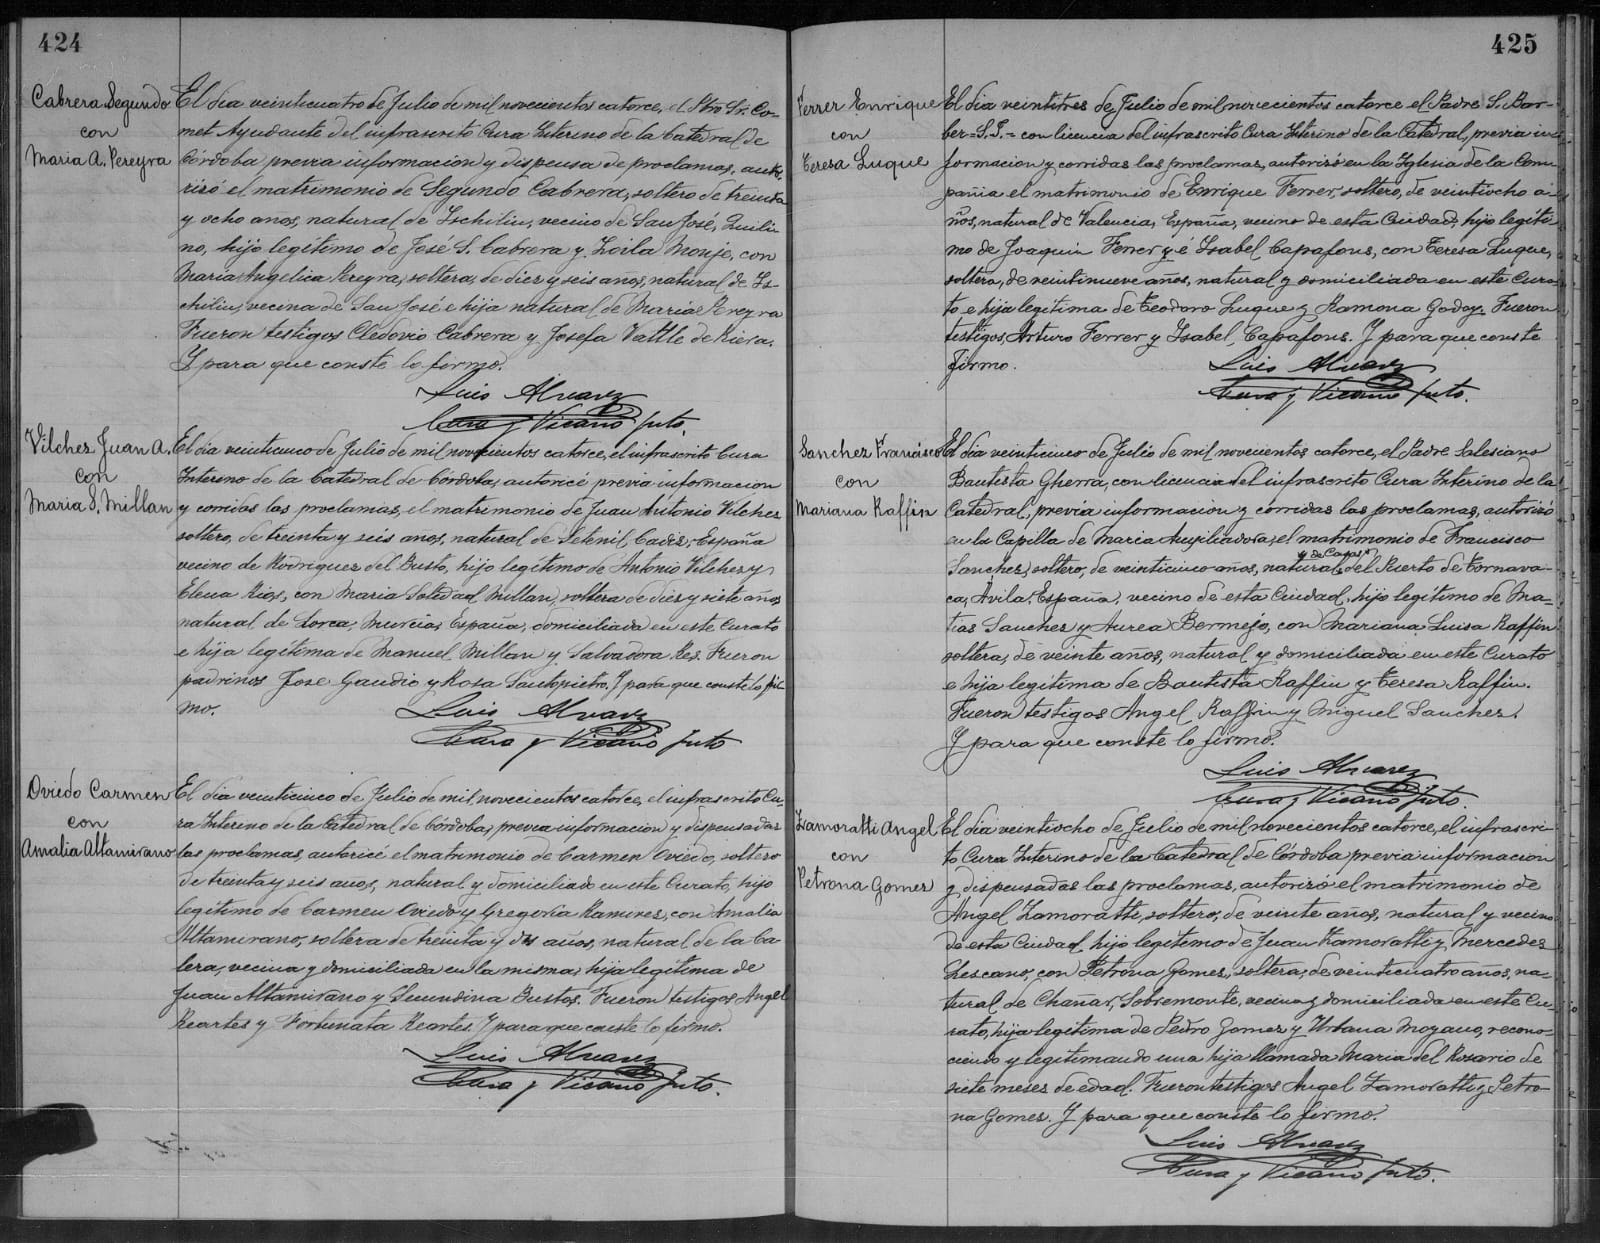 424
Cabrera Segundo
con
Maria A. Pereyra
El dia veinticuatro de Julio de mil novecientos catorce, el Pbro Sr. Co-
met Ayudante del infrascrito Cura Interino de la Catedral de
Córdoba previa informacion y dispensa de proclamas, auto-
rizó el matrimonio de Segundo Cabrera, soltero de treinta
y ocho años, natural de Ischilin, vecino de San José, Quili-
no, hijo legítimo de José S. Cabrera y Zoila Monje, con
Maria Angelica Pereyra, soltera, de diez y seis años, natural de Is-
chilin, vecina de San José e hija natural de Maria Pereyra
Fueron testigos Cledovio Cabrera y Josefa Vattle de Riera.
Y para que conste lo firmo.
Luis Alvarez
Cura y Vicario Into.
Vilchez Juan A.
con
Maria S. Millan
El dia veinticinco de Julio de mil novecientos catorce, el infrascrito Cura
Interino de la Catedral de Córdoba, autoricé previa informacion
y corridas las proclamas, el matrimonio de Juan Antonio Vilchez
soltero, de treinta y seis anos, natural de Setenil, Cadiz, España
vecino de Rodriguez del Busto, hijo légitimo de Antonio Vilchez y
Elena Rios, con Maria Soledad Millan, soltera de diez y siete años
natural de Lorca, Murcia, España, domiciliada en este Curato
e hija legítima de Manuel Millan y Salvadora Res. Fueron
padrinos Jose Gaudio y Rosa Santopietro. Y para que conste lo fir-
mo.
Luis Alvarez
Cura y Vicario Into
Oviedo Carmen
con
Amalia Altamirano
El dia veinticinco de Julio de mil novecientos catorce, el infrascrito Cu-
ra Interino de la Catedral de Córdoba, previa informacion y dispensadas
las proclamas, autoricé el matrimonio de Carmen Oviedo, soltero
de treinta y seis años, natural y domiciliado en este Curato, hijo
legítimo de Carmen Oviedo y Gregoria Ramires, con Amalia
Altamirano, soltera de treinta y dos años, natural de la Ca-
lera, vecina y domiciliada en la misma, hija legítima de
Juan Altamirano y Secundina Bustos. Fueron testigos Angel
Reartes y Fortunata Reartes. Y para que conste lo firmo.
Luis Alvarez
Cura y Vicario Into.
425
Ferrer Enrique
con
Teresa Luque
El dia veintitres de Julio de mil novecientos catorce el Padre S. Bar-
ber=S.J.= con licencia del infrascrito Cura Interino de la Catedral, previa in-
formacion y corridas las proclamas, autorizó en la Iglesia de la Com-
pañia el matrimonio de Enrique Ferrer, soltero, de veintiocho a-
ños, natural de Valencia, España, vecino de esta Ciudad, hijo legíti-
mo de Joaquin Ferrer y é Isabel Capafons, con Teresa Luque,
soltera, de veintinueve años, natural y domiciliada en este Cura-
to e hija legítima de Teodoro Luque y Ramona Godoy. Fueron
testigos, Arturo Ferrer y Isabel Capafons. Y para que conste
firmo.
Luis Alvarez
Cura y Vicario Into.
Sanchez Francisco
con
Mariana Raffin
El dia veinticinco de Julio de mil novecientos catorce, el Padre Salesiano
Bautista Gherra, con licencia del infrascrito Cura Interino de la
Catedral, previa informacion y corridas las proclamas, autorizó
en la Capilla de Maria Auxiliadora, el matrimonio de Francisco
y de Casas
Sanchez, soltero, de veinticinco años, natural del Puerto de Tornava-
ca, Ávila, España, vecino de esta Ciudad, hijo legítimo de Ma-
tias Sanchez y Aurea Bermejo, con Mariana Luisa Raffin
soltera, de veinte años, natural y domiciliada en este Curato
e hija legítima de Bautista Raffin y Teresa Raffin.
Fueron testigos Angel Raffin y Miguel Sanchez.
Y para que conste lo firmo.
Luis Alvarez
Cura y Vicario Into.
Zamoratti Angel
con
Petrona Gomez
El dia veintiocho de Julio de mil novecientos catorce, el infrascri-
to Cura Interino de la Catedral de Córdoba previa informacion
y dispensadas las proclamas, autorizó el matrimonio de
Angel Zamoratti, soltero, de veinte años, natural y vecino
de esta Ciudad, hijo legítimo de Juan Zamoratti y Mercedes
Lescano, con Petrona Gomez, soltera, de veinticuatro años, na-
tural de Chañar, Sobremonte, vecina y domiciliada en este Cu-
rato, hija legítima de Pedro Gomez y Urbana Moyano, recono-
ciendo y legitimando una hija llamada Maria del Rosario de
siete meses de edad. Fueron testigos Angel Zamoratti y Petro-
na Gomes. Y para que conste lo firmo.
Luis Alvarez
Cura y Vicario Into.